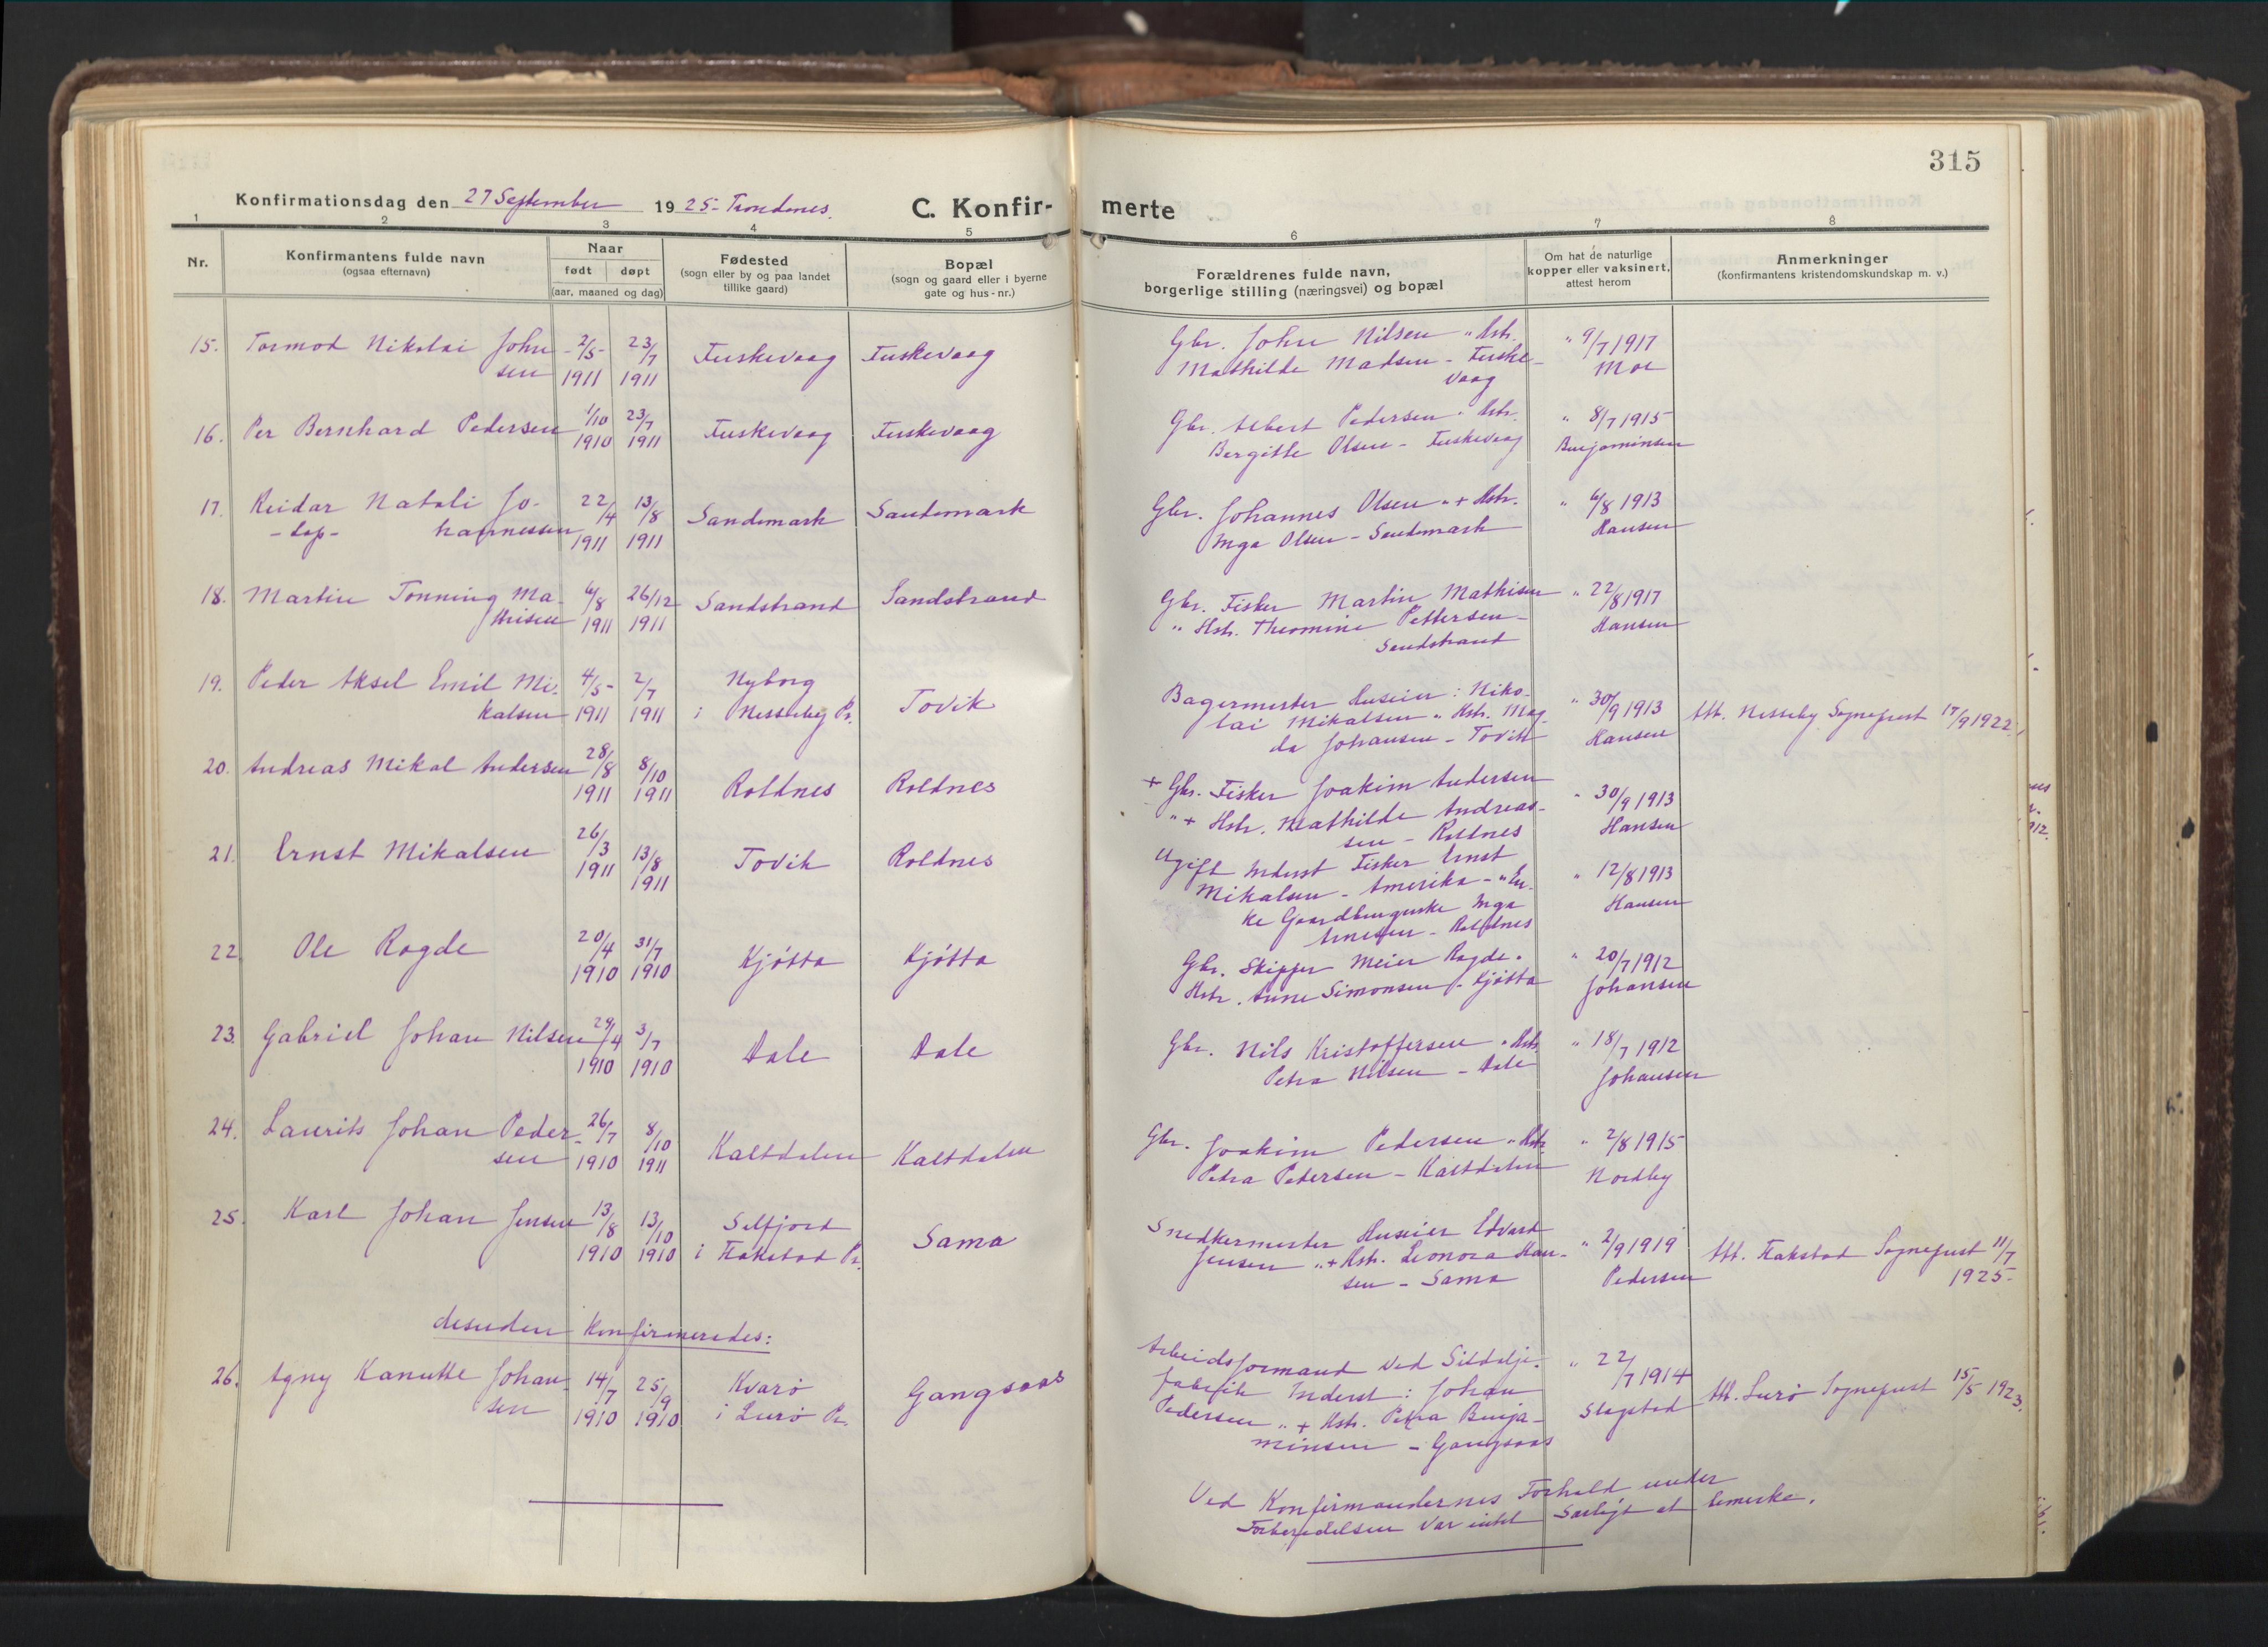 315
Konfirmationsdag den 27 September 1925 - Trondenes.
C. Konfirmerte
1 2 3 4 5 6 7 8
Nr.
Konfirmantens fulde navn
(ogsaa efternavn)
Naar
født døpt
(aar, maaned og dag)
Fødested
(sogn eller by og paa landet
tillike gaard)
Bopæl
(sogn og gaard eller i byerne
gate og hus-nr.)
Forældrenes fulde navn,
borgerlige stilling (næringsvei) og bopæl
Om hat de naturlige
kopper eller vaksinert,
attest herom
Anmerkninger
(konfirmantens kristendomskundskap m. v.)
15. Tormod Nikolai John- 2/5- 23/7 Fuskevaag Fuskevaag Gbr. John Nilsen " Hstr. " 9/7 1917
sen 1911 1911 Mathilde Madsen - Fuske- Moe
vaag
16. Per Bernhard Pedersen 1/10 23/7 Fuskevaag Fuskevaag Gbr. Albert Pedersen " Hstr. " 8/7 1915
1910 1911 Bergitte Olsen - Fuskevaag Benjaminsen
17. Reidar Natali Jo- 22/4 13/8 Sandemark Sandemark Gbr. Johannes Olsen " + Hstr. " 6/8 1913
- lap - hannessen 1911 1911 Inga Olsen - Sandemark Hansen
18. Martin Tonning Ma- 6/8 26/12 Sandstrand Sandstrand Gbr. Fisker Martin Mathisen " 22/8 1917
thisen 1911 1911 " Hstr. Thomine Pettersen - Hansen
Sandstrand
19. Peder Aksel Emil Mi- 4/5- 2/7 Nyborg Tovik Bagermester Huseier: Niko- " 30/9 1913
kalsen 1911 1911 i Nesseby Pr. lai Mikalsen " Hstr. Mag- Hansen Att. Nesseby Sogneprest 17/9 1922.
da Johansen - Tovik
20. Andreas Mikal Andersen 28/8 8/10 Roldnes Roldnes + Gbr. Fisker Joakim Andersen " 30/9 1913
1911 1911 " + Hstr. Mathilde Andreas- Hansen
sen - Roldnes
21. Ernst Mikalsen 26/3 13/8 Tovik Roldnes Ugift Inderst Fisker Ernst " 12/8 1913
1911 1911 Mikalsen - Amerika - " En- Hansen
ke Gaardbrugerske Inga
Arnesen - Roldnes
22. Ole Rogde 20/4 31/7 Kjøtta Kjøtta Gbr. Skipper Meier Rogde " " 20/7 1912
1910 1910 Hstr. Anne Simonsen - Kjøtta Johansen
23. Gabriel Johan Nilsen 29/4 3/7 Dale Dale Gbr. Nils Kristoffersen " Hstr. " 18/7 1912
1910 1910 Petra Nilsen - Dale Johansen
24. Laurits Johan Peder- 26/7 8/10 Kaltdalen Kaltdalen Gbr. Joakim Pedersen " Hstr. " 2/8 1915
sen 1910 1911 Petra Pedersen - Kaltdalen Nordby
25. Karl Johan Jensen 13/8 13/10 Selfjord Sama Snedkermester Huseier Edvard " 2/9 1919
1910 1910 i Flakstad Pr. Jensen " + Hstr. Leonora Han- Pedersen Att. Flakstad Sogneprest 11/7
sen - Sama 1925.
desuden konfirmeredes:
26. Agny Kanutte Johan- 14/7 25/9 Kvarø Gangsaas Arbeidsformand ved Sildolje- " 22/7 1914
sen 1910 1910 i Lurø Pr. fabrik Inderst: Johan Slagstad Att. Lurø Sogneprest 15/5 1923.
Pedersen " + Hstr. Petra Benja-
minsen - Gangsaas
Ved Konfirmandernes Forhold under
Forberedelsen var intet særligt at bemerke.